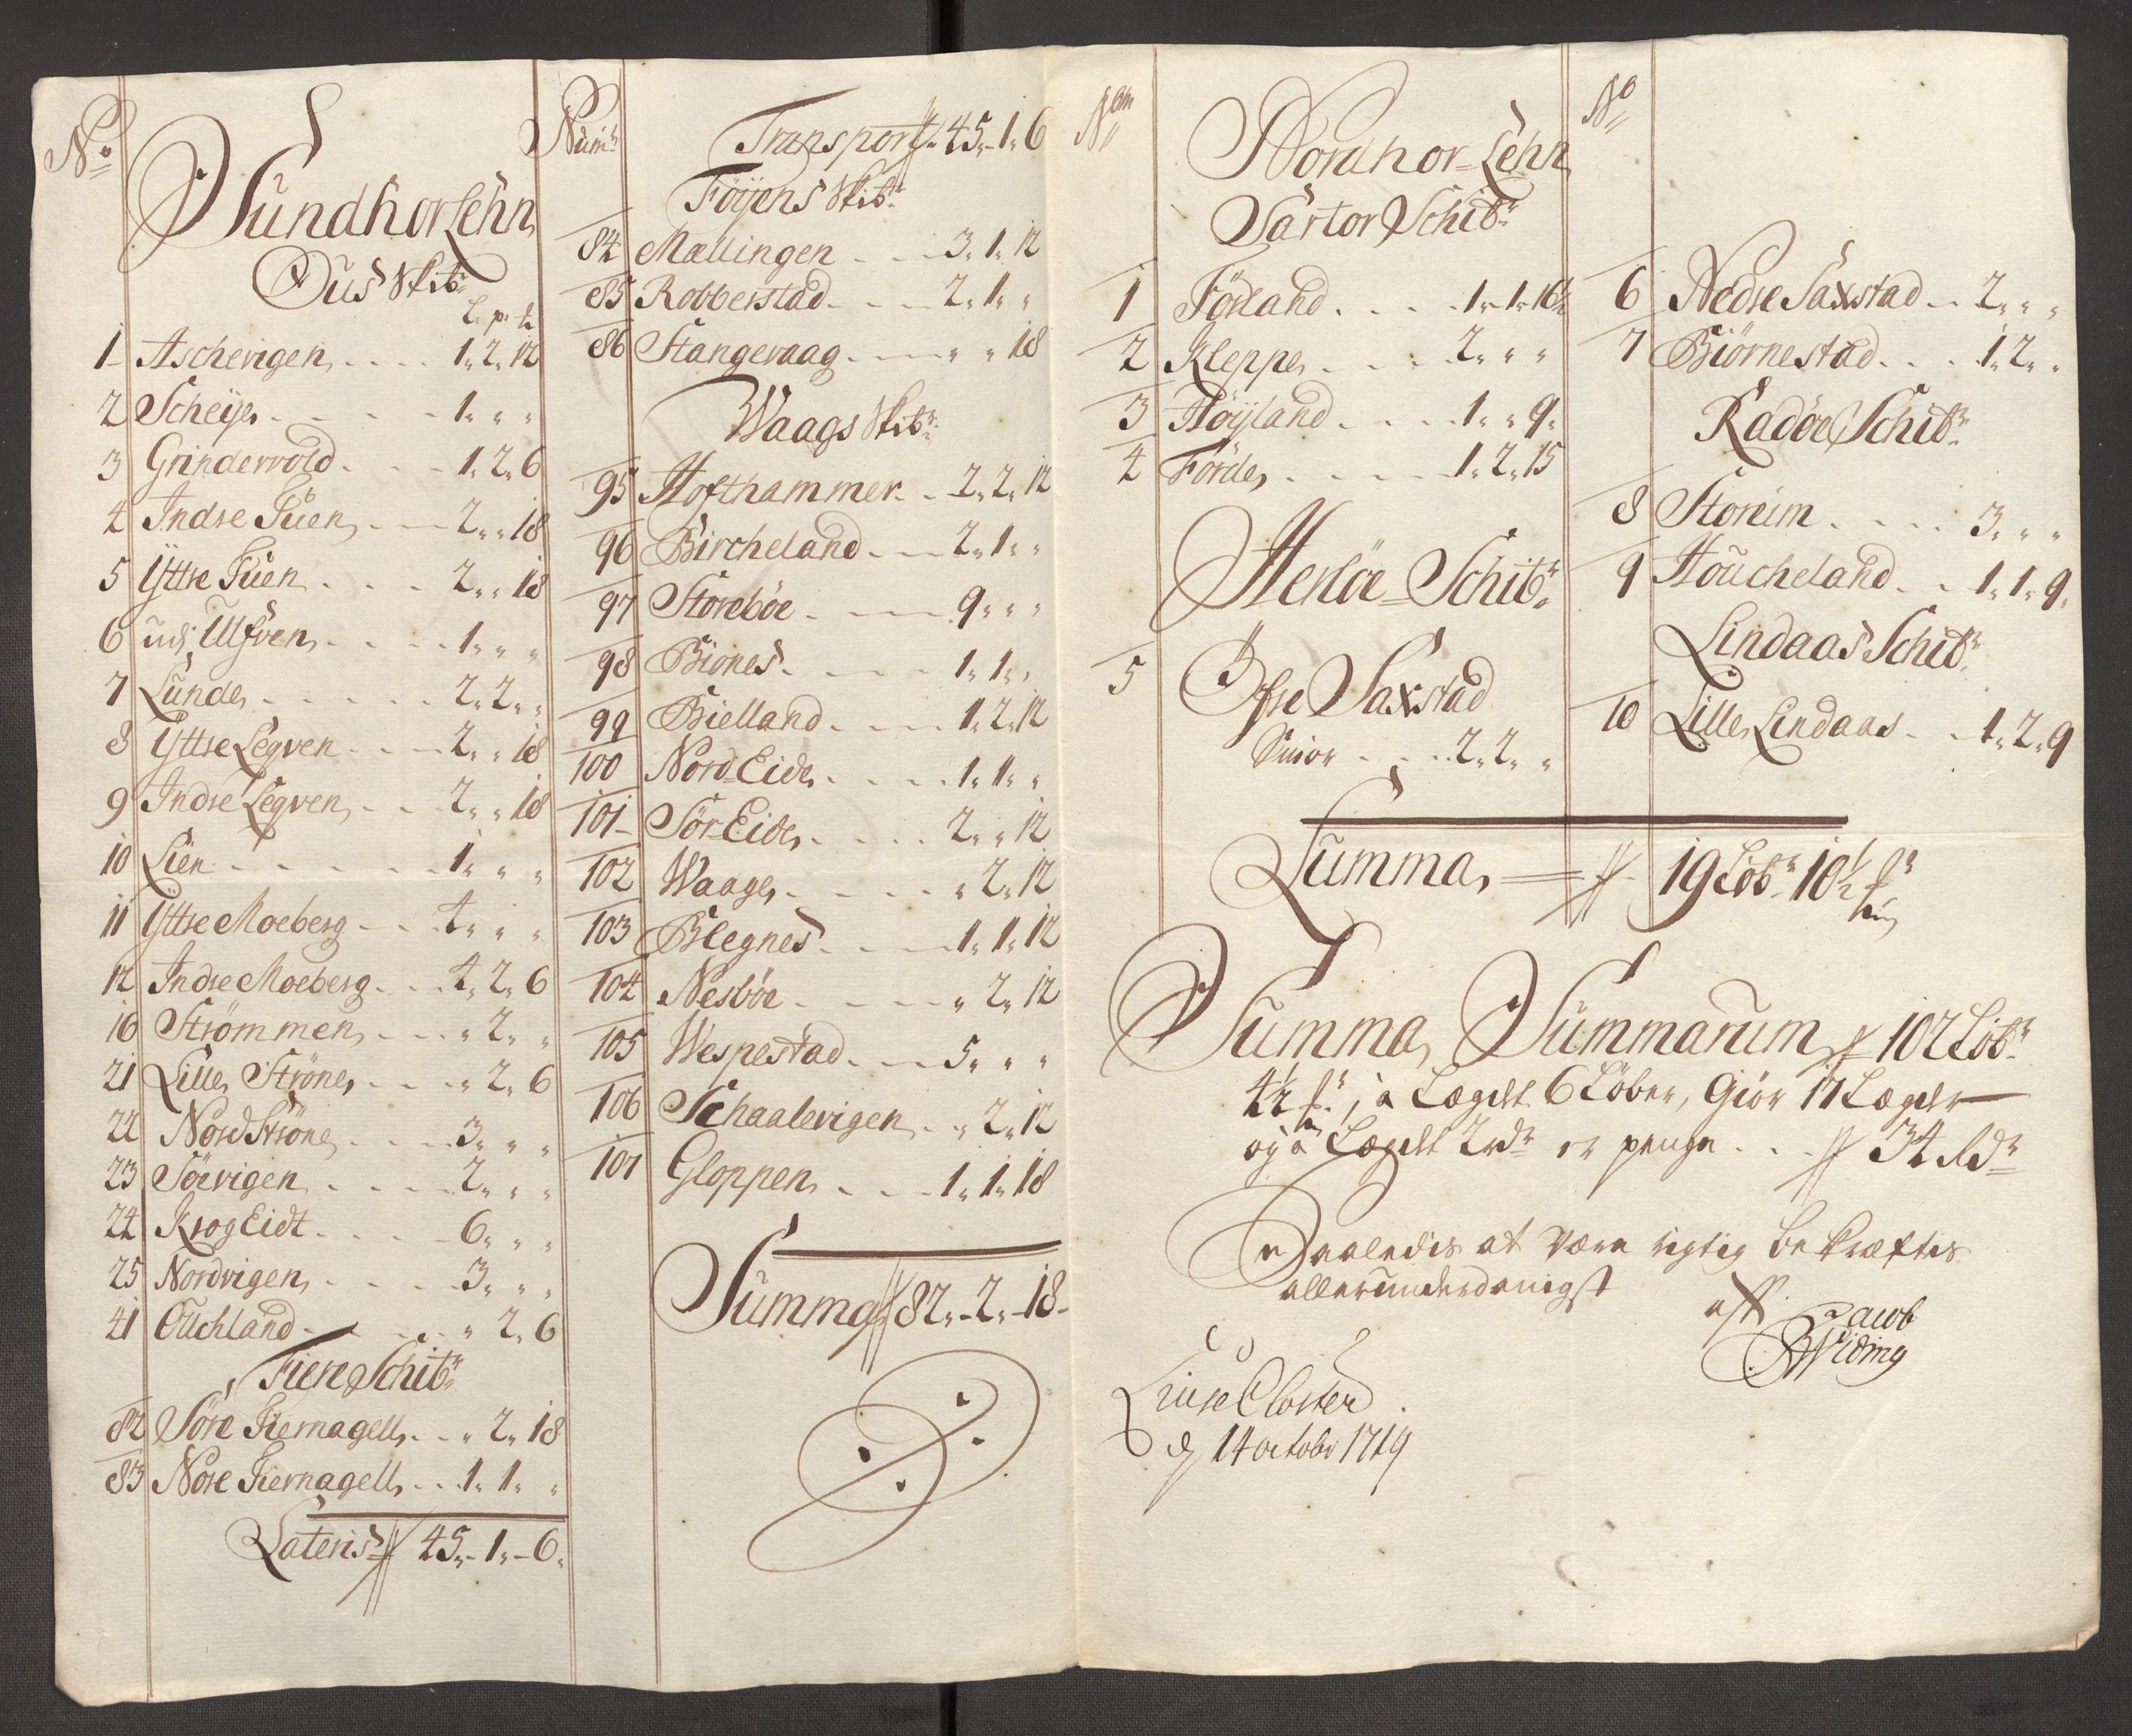 No
Sundhor Lehn
Ous Skibr
L. p. h
1 Aschevigen 1" 2" 12
2 Scheije 1" " "
3 Grindevold 1" 2" 6
4 Indse Tuen 2" " 18
5 Yttse Tuen 2" " 18
6 udj Ulfven 1" " "
7 Lunde 2" 2" "
8 Yttse Legven 2" " 18
9 Indse Legven 2" " 18
10 Lien 1" " "
11 Yttse Moeberg 4" " "
12 Indse Moeberg 4" 2" 6
16 Strömmen " 2" "
21 Lille Ströne " 2" 6
22 Nord Ströne 3" " "
23 Söevigen 2" " "
24 Krog Eidt 6" " "
25 Nordvigen 3" " "
41 Ouchland " 2" 6
Fiere Schibr
82 Söre Fiernagell " 2" 18
83 Nore Fiernagell 1" 1" "
Lateris 45"-1"-6"
Numr
Transport 45"-1" 6
Föyens Skibr
84 Mallingen 3" 1" 12
85 Robberstad 2" 1" "
86 Stangevaag " " 18
Waags Skibr
95 Hofthammer 2" 2" 12
96 Bircheland 2" 1" "
97 Storebøe 9" " "
98 Biones 1" 1" "
99 Bielland 1" 2" 12
100 Nord Eide 1" 1" "
101 Sör Eide 2" " 12
102 Waage " 2" 12
103 Blegnes 1" 1" 12
104 Nesbøe " 2" 12
105 Wespestad 5" " "
106 Schaalevigen " 2" 12
107 Gloppen 1" 1" 18
Summa 82"-2"-18-
Nom
Nordhor-Lehn
Sartor Schibr
1 Förland 1" 1" 16½
2 Kleppe 2" " "
3 Höijland 1" " 9"
4 Förde 1" 2" 15
Herlöe-Schibr
5 Øfse Saxstad
2" 2" "
No
6 Nedse Saxstad 2" " "
7 Biörnestad 1" 2" "
Radöe Schibr
8 Storeim 3" " "
9 Houcheland 1" 1" 9"
Lindaas Schibr
10 Lille Lindaas 1" 2" 9
Summa 19 Löbr 10½
Summa Summarum 102 Löbr
4½ , à Lægdt 6 Löber, Giör 17 Lægder
og à Lægdt 2 rdr er penge 34 Rdr
Saaledis at være rigtig bekræftes
allerunderdanigst
aff
Jacob
Widing
Liuse Closter
d 14 octobr 1719